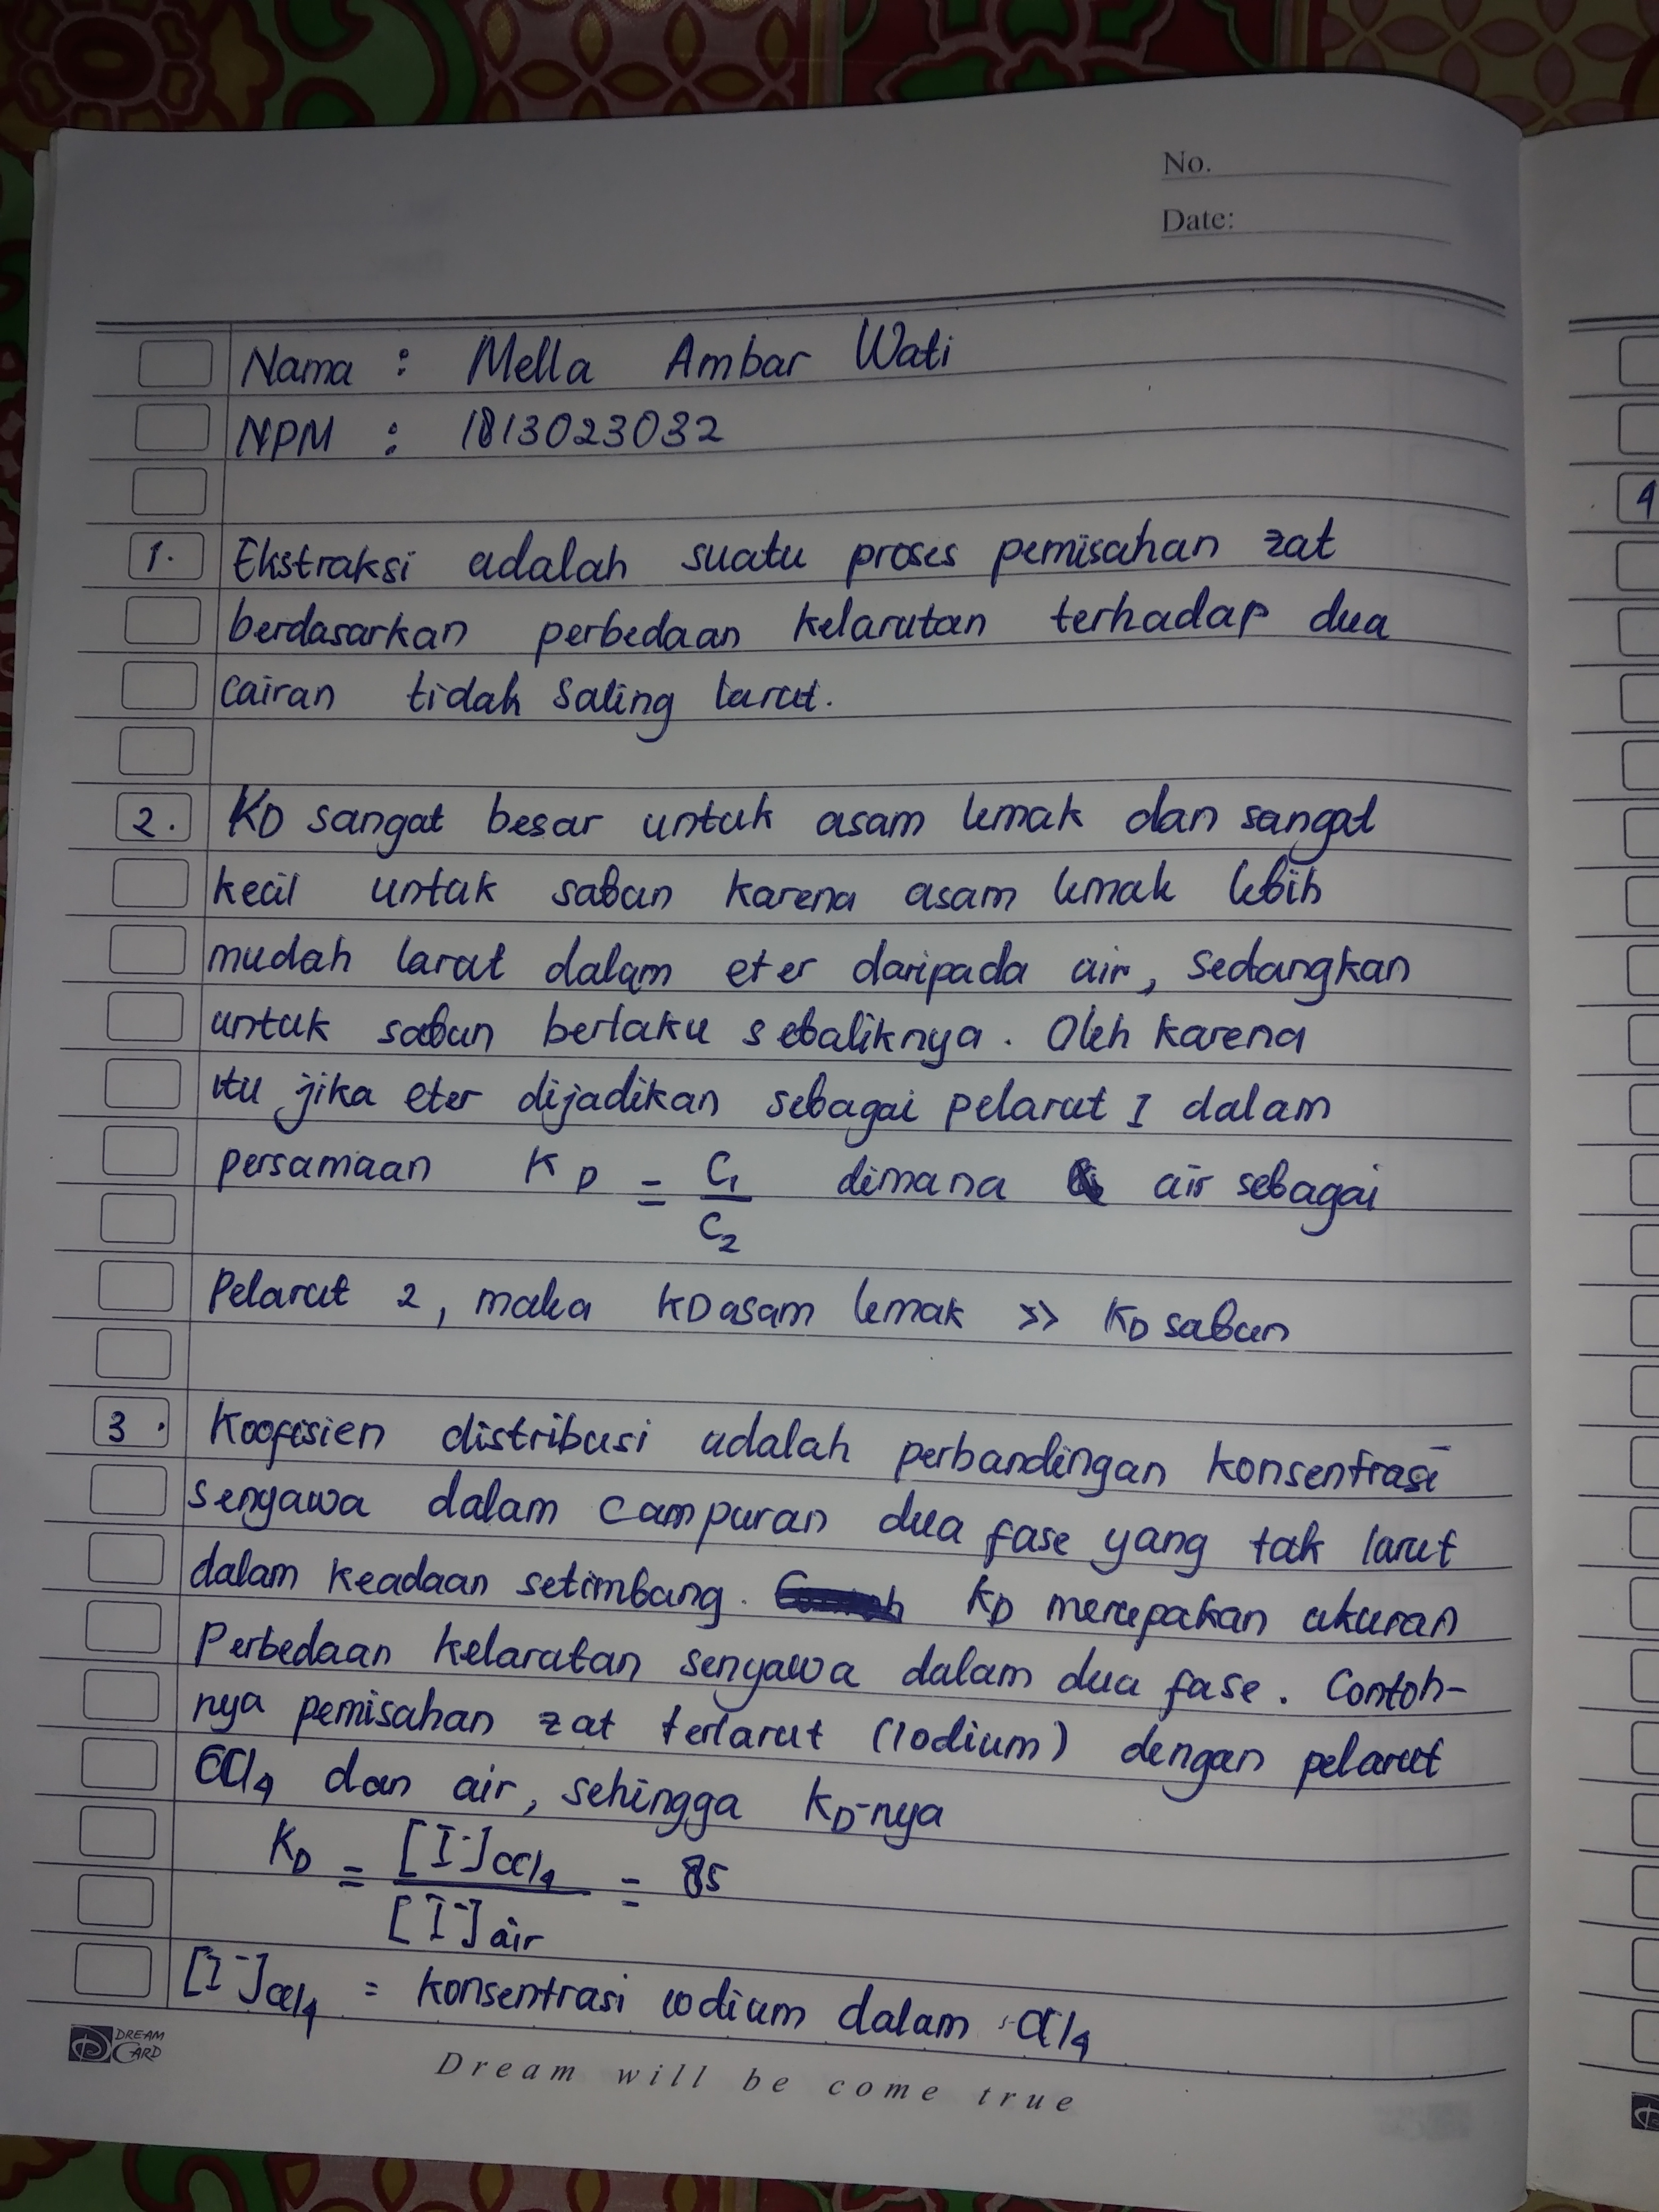 No.
Date:
Nama : Mella Ambar Wati
NPM : 1813023032
1. Ekstraksi adalah suatu proses pemisahan zat
berdasarkan perbedaan kelarutan terhadap dua
cairan tidak saling larut.
2. KD sangat besar untuk asam lemak dan sangat
kecil untuk sabun karena asam lemak lebih
mudah larut dalam eter daripada air, sedangkan
untuk sabun berlaku sebaliknya. Oleh karena
itu jika eter dijadikan sebagai pelarut I dalam
persamaan KD = C1/C2 dimana air sebagai
Pelarut 2, maka KD asam lemak >> KD sabun
3. Koofisien distribusi adalah perbandingan konsentrasi
senyawa dalam campuran dua fase yang tak larut
dalam keadaan setimbang. KD merupakan ukuran
Perbedaan kelarutan senyawa dalam dua fase. Contoh-
nya pemisahan zat terlarut (Iodium) dengan pelarut
CCl4 dan air, sehingga KD-nya
KD = [I-]CCl4 / [I-]air = 85
[I-]CCl4 = konsentrasi iodium dalam CCl4
DREAM CARD
Dream will be come true
4